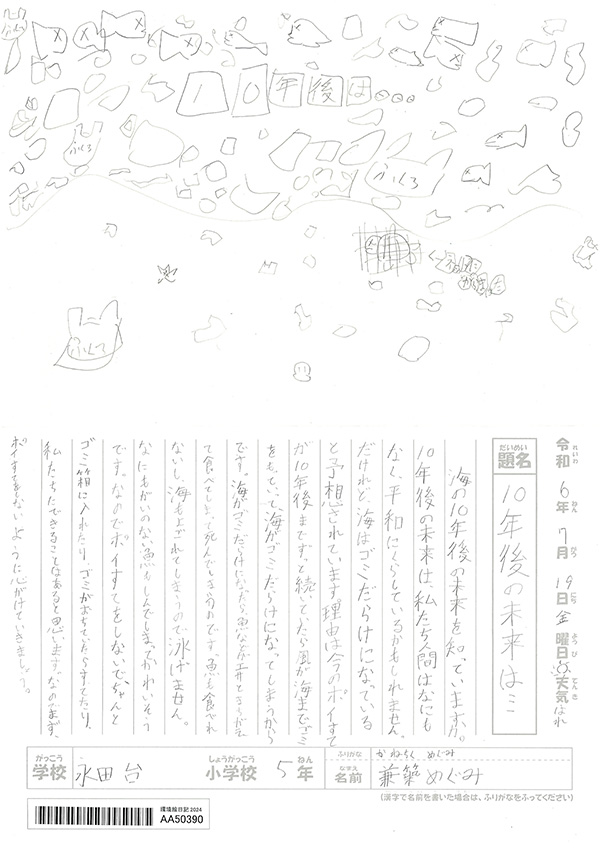 ふくろ
10年後は...
ふくろ
ふくろ
ふくろ
令和6年7月19日金曜日天気はれ
れいわ ねん がつ にち よう び てんき
だいめい
題名
10年後の未来は…
海の10年後の未来を知っていますか。
10年後の未来は、私たち人間はなにも
なく、平和にくらしているかもしれません。
だけれど、海はゴミだらけになっている
と予想されています。理由は今のポイすて
が10年後まですっと続いてたら風が海までゴミ
をもっていて、海がゴミだらけになってしまうから
です。海がゴミだらけになったら魚などが
て食べてしまって死んでいまうのです。魚も食べれ
ないし、海もよごれてしまうので泳げません。
なにもがいのない魚もしんでしまってかわいそう
です。なのでポイすてをしないで、ちゃんと
ゴミ箱に入れたり、ゴミがおちていたらすてたり、
私たちたできることはあると思います。なのでまず、
ポイすてをしないように心がけていきましょう。
がっこう
学校
永田台
しょうがっこう
小学校
5
ねん
年
ふりがな
かねちく めぐみ
なまえ
名前
兼築めぐみ
(漢字で名前を書いた場合は、ふりがなをふってください)
環境絵日記2024
AA50390